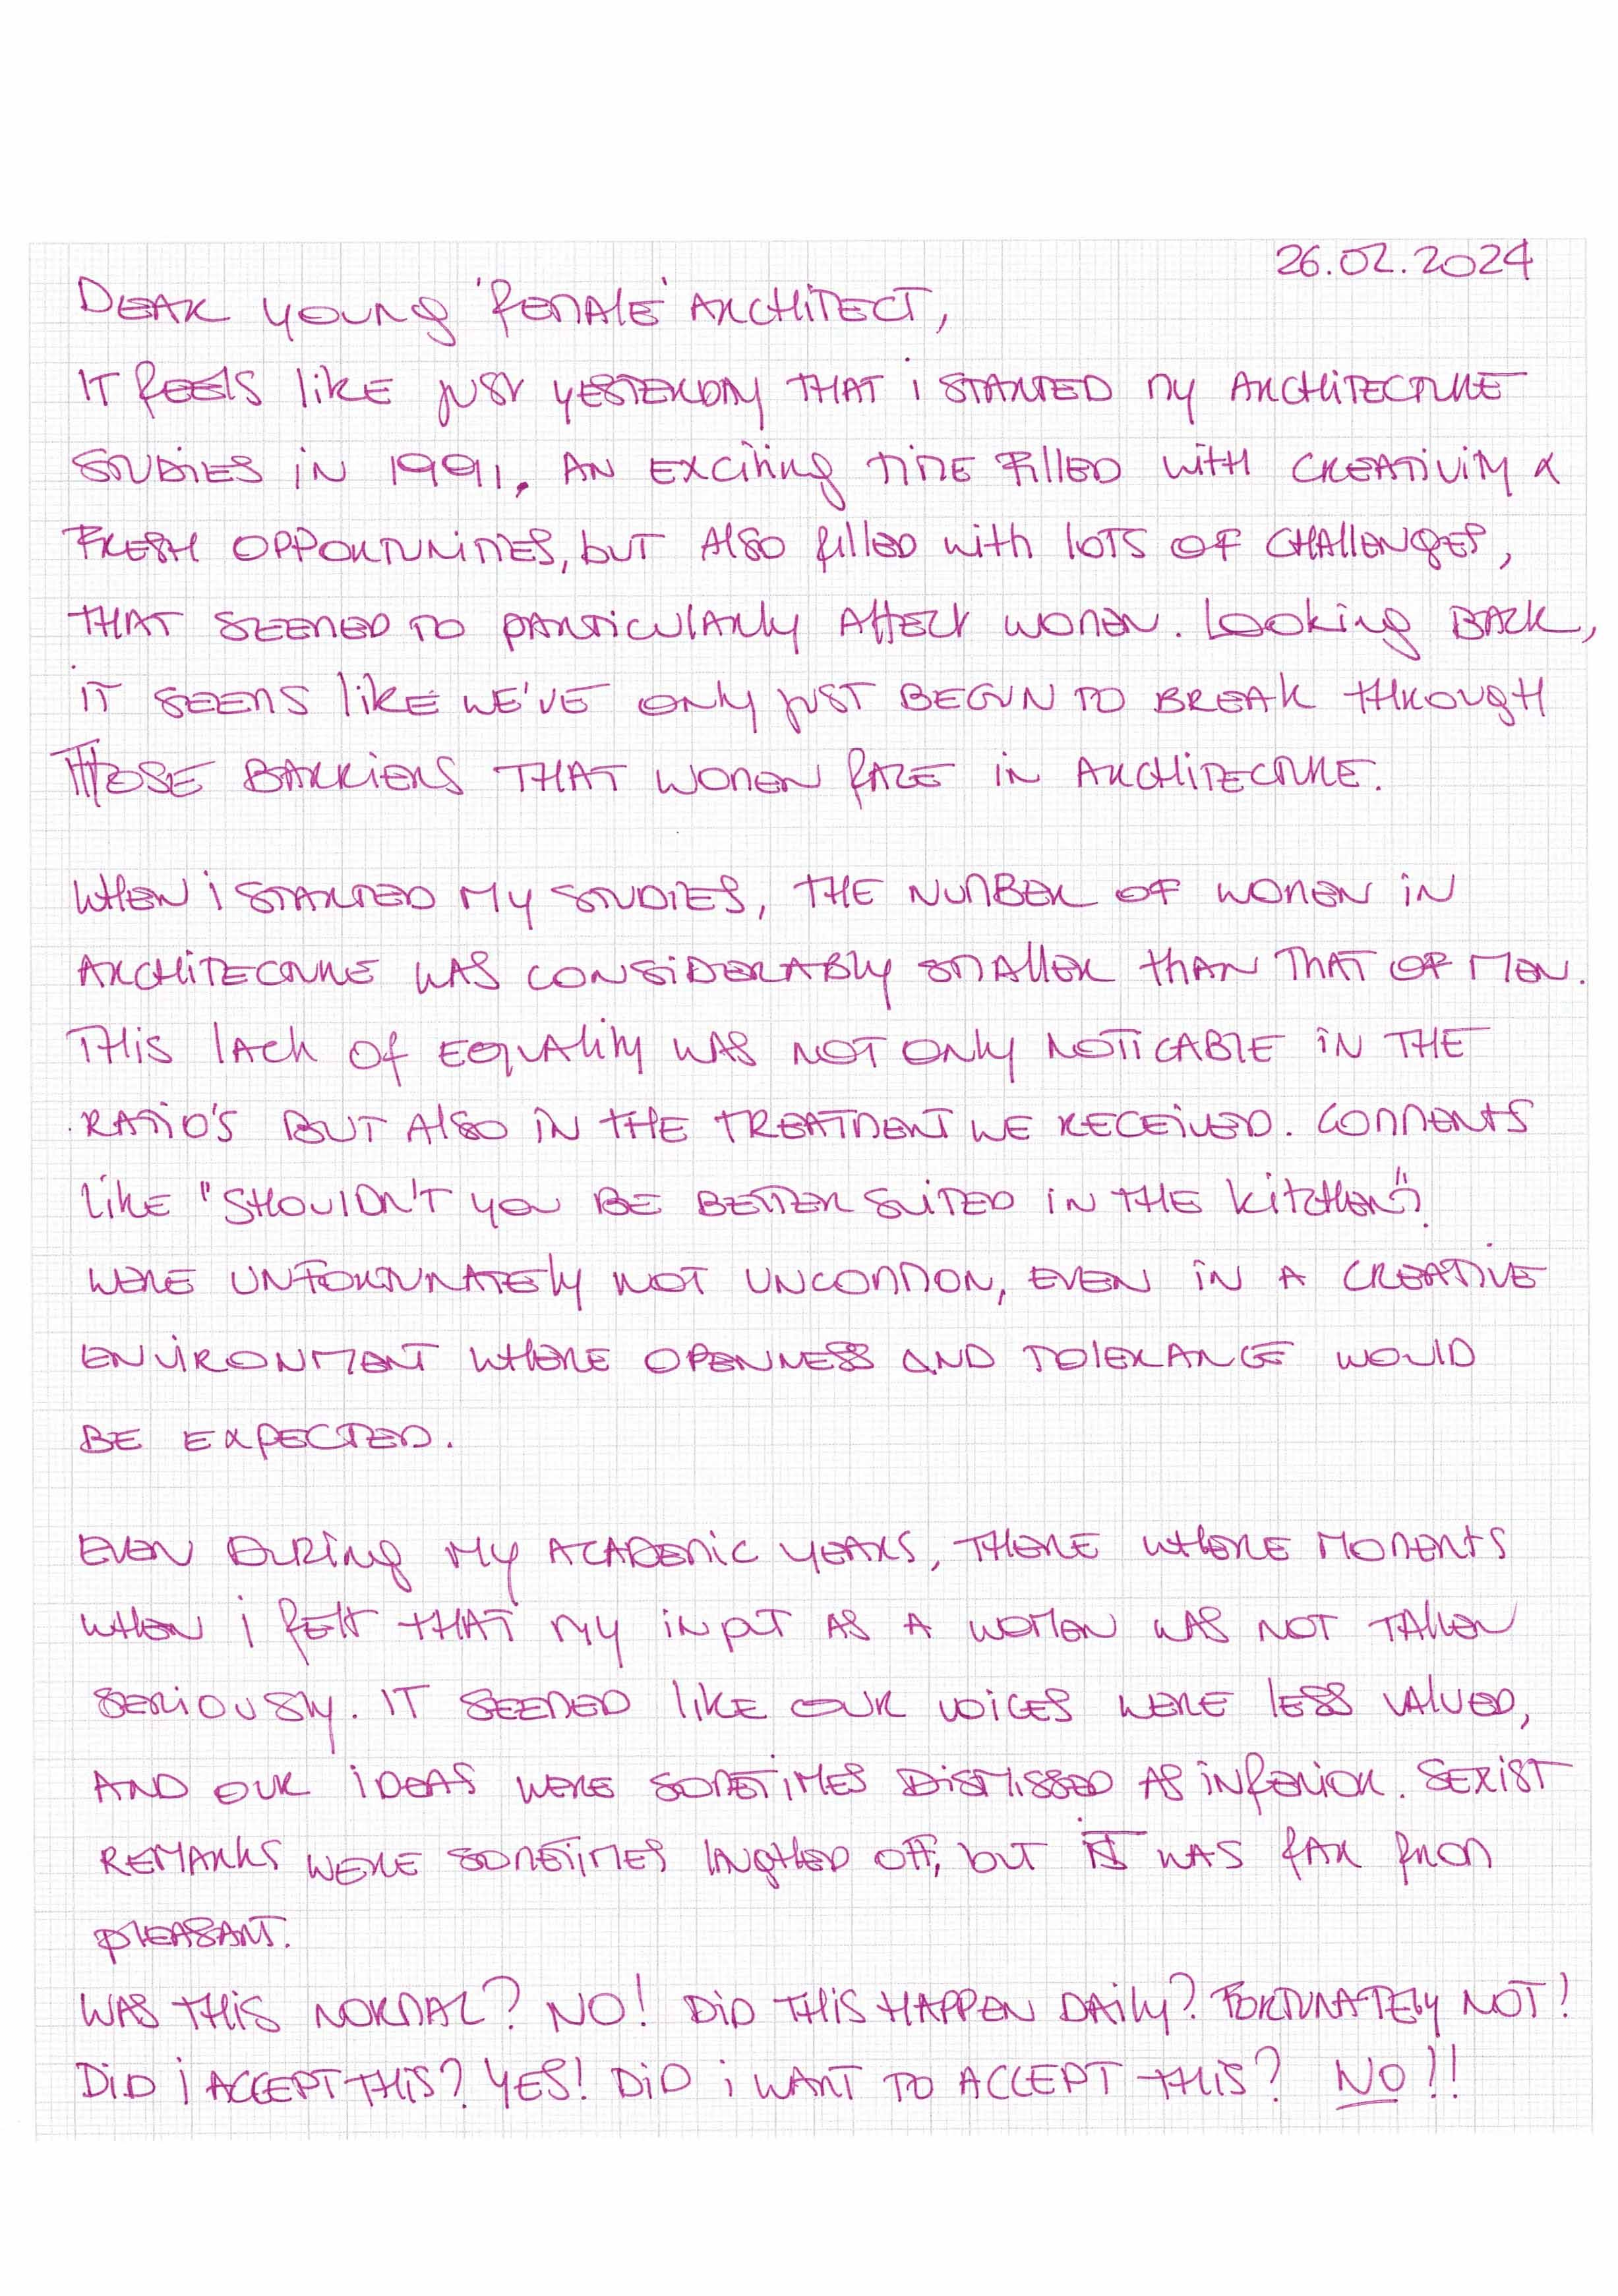 26.02.2024
DEAR YOUNG 'FEMALE' ARCHITECT,
IT feels like just YESTERDAY THAT i STARTED my ARCHITECTURE
STUDIES iN 1991. AN EXCiting TIME FillED with CREATIVITY &
FRESH OPPORTUNITIES, buT Also filled with lOTS OF CHAllENGES,
THAT SEEMED TO pARTiculARly AffECT WOMEN. Looking BACK,
iT SEEMS liKE WE'VE ONly jUST BEGUN TO BREAK THROUGH
THOSE BARRiERS THAT WOMEN fACE iN ARCHiTECTURE.
WHEN i STARTED MY STUDIES, THE NUMBER OF WOMEN iN
ARCHiTECTURE WAS CONSiDERABly SMAllER thAN THAT OF MEN.
THis lAck Of EQUAliTy WAS NOT ONly NOTiCABlE iN THE
RATiO'S BUT AlSO iN tHE TREATMENT WE RECEiVED. COMMENTS
likE "SHOUlDN'T you BE BETTER SUiTED iN THE kitchen"?
WERE UNFORTUNATEly NOT UNCOMMON, EVEN iN A CREATiVE
ENViRONMENT WHERE OPENNESS AND TOlERANCE WOUlD
BE EXPECTED.
EVEN DURiNg MY ACADEMiC YEARS, THERE WHERE MOMENTS
WHEN i felt THAT my iNpUT AS A WOMEN WAS NOT TAKEN
SERiOUSly. iT SEEMED liKE OUR VOiCES WERE lESS VAlUED,
AND OUR iDEAS WERE SOMETiMES DiSMiSSED AS iNfERiOR. SEXiST
REMARKS WERE SOMETiMES lAUgHED Off, buT iT WAS fAR fROM
plEASANT.
WAS THiS NORMAL? NO! DiD THiS HAPPEN DAily? FORTUNATEly NOT!
DiD i ACCEPT THiS? YES! DiD i WANT TO ACCEPT THiS? NO!!